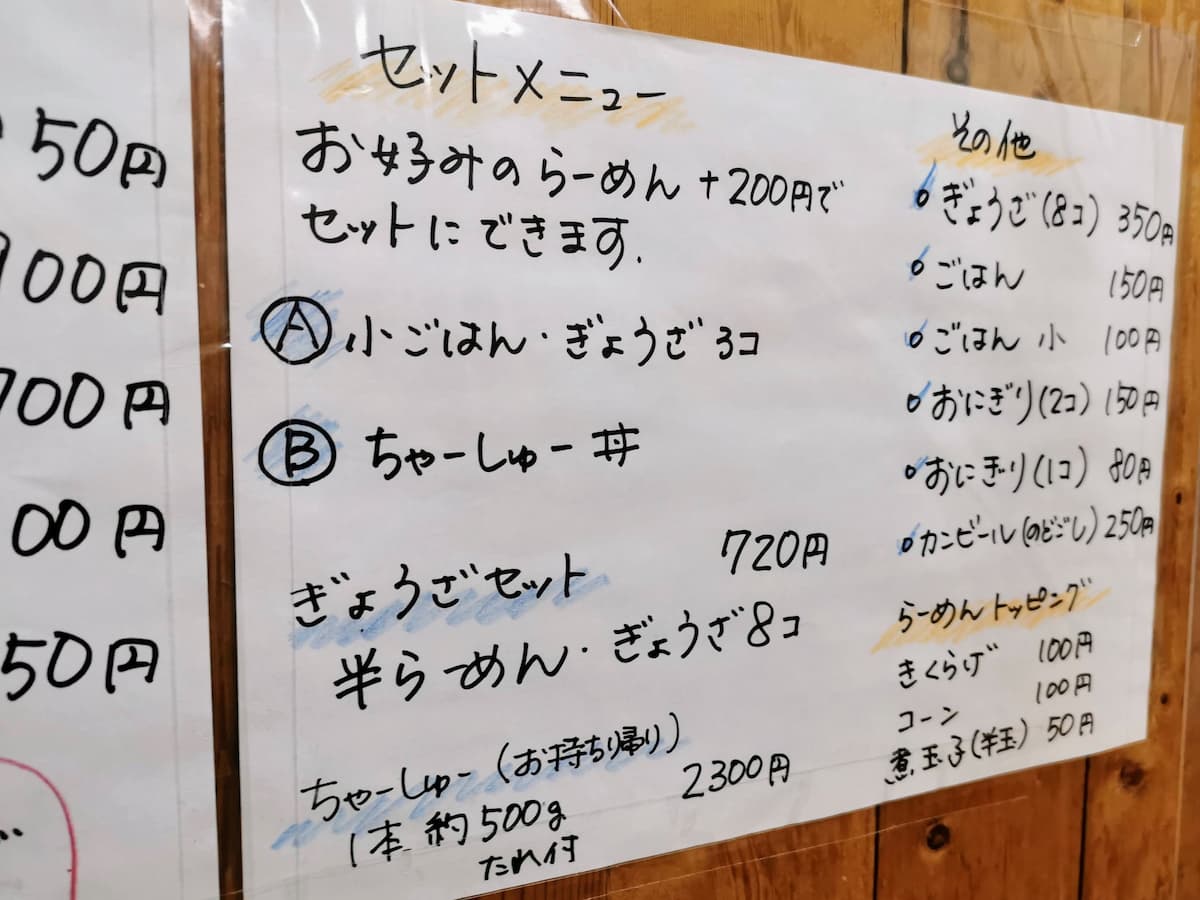 50円
00円
700円
00円
50円
セットメニュー
お好みのらーめん +200円で
セットにできます.
Ⓐ 小ごはん・ぎょうざ 3コ
Ⓑ ちゃーしゅー丼
ぎょうざセット 720円
半らーめん・ぎょうざ8コ
ちゃーしゅー (お持ち帰り)
1本 約500g 2300円
たれ付
その他
ぎょうざ(8コ) 350円
ごはん 150円
ごはん 小 100円
おにぎり(2コ) 150円
おにぎり(1コ) 80円
カンビール(のどごし) 250円
らーめんトッピング
きくらげ 100円
コーン 100円
煮玉子(半玉) 50円